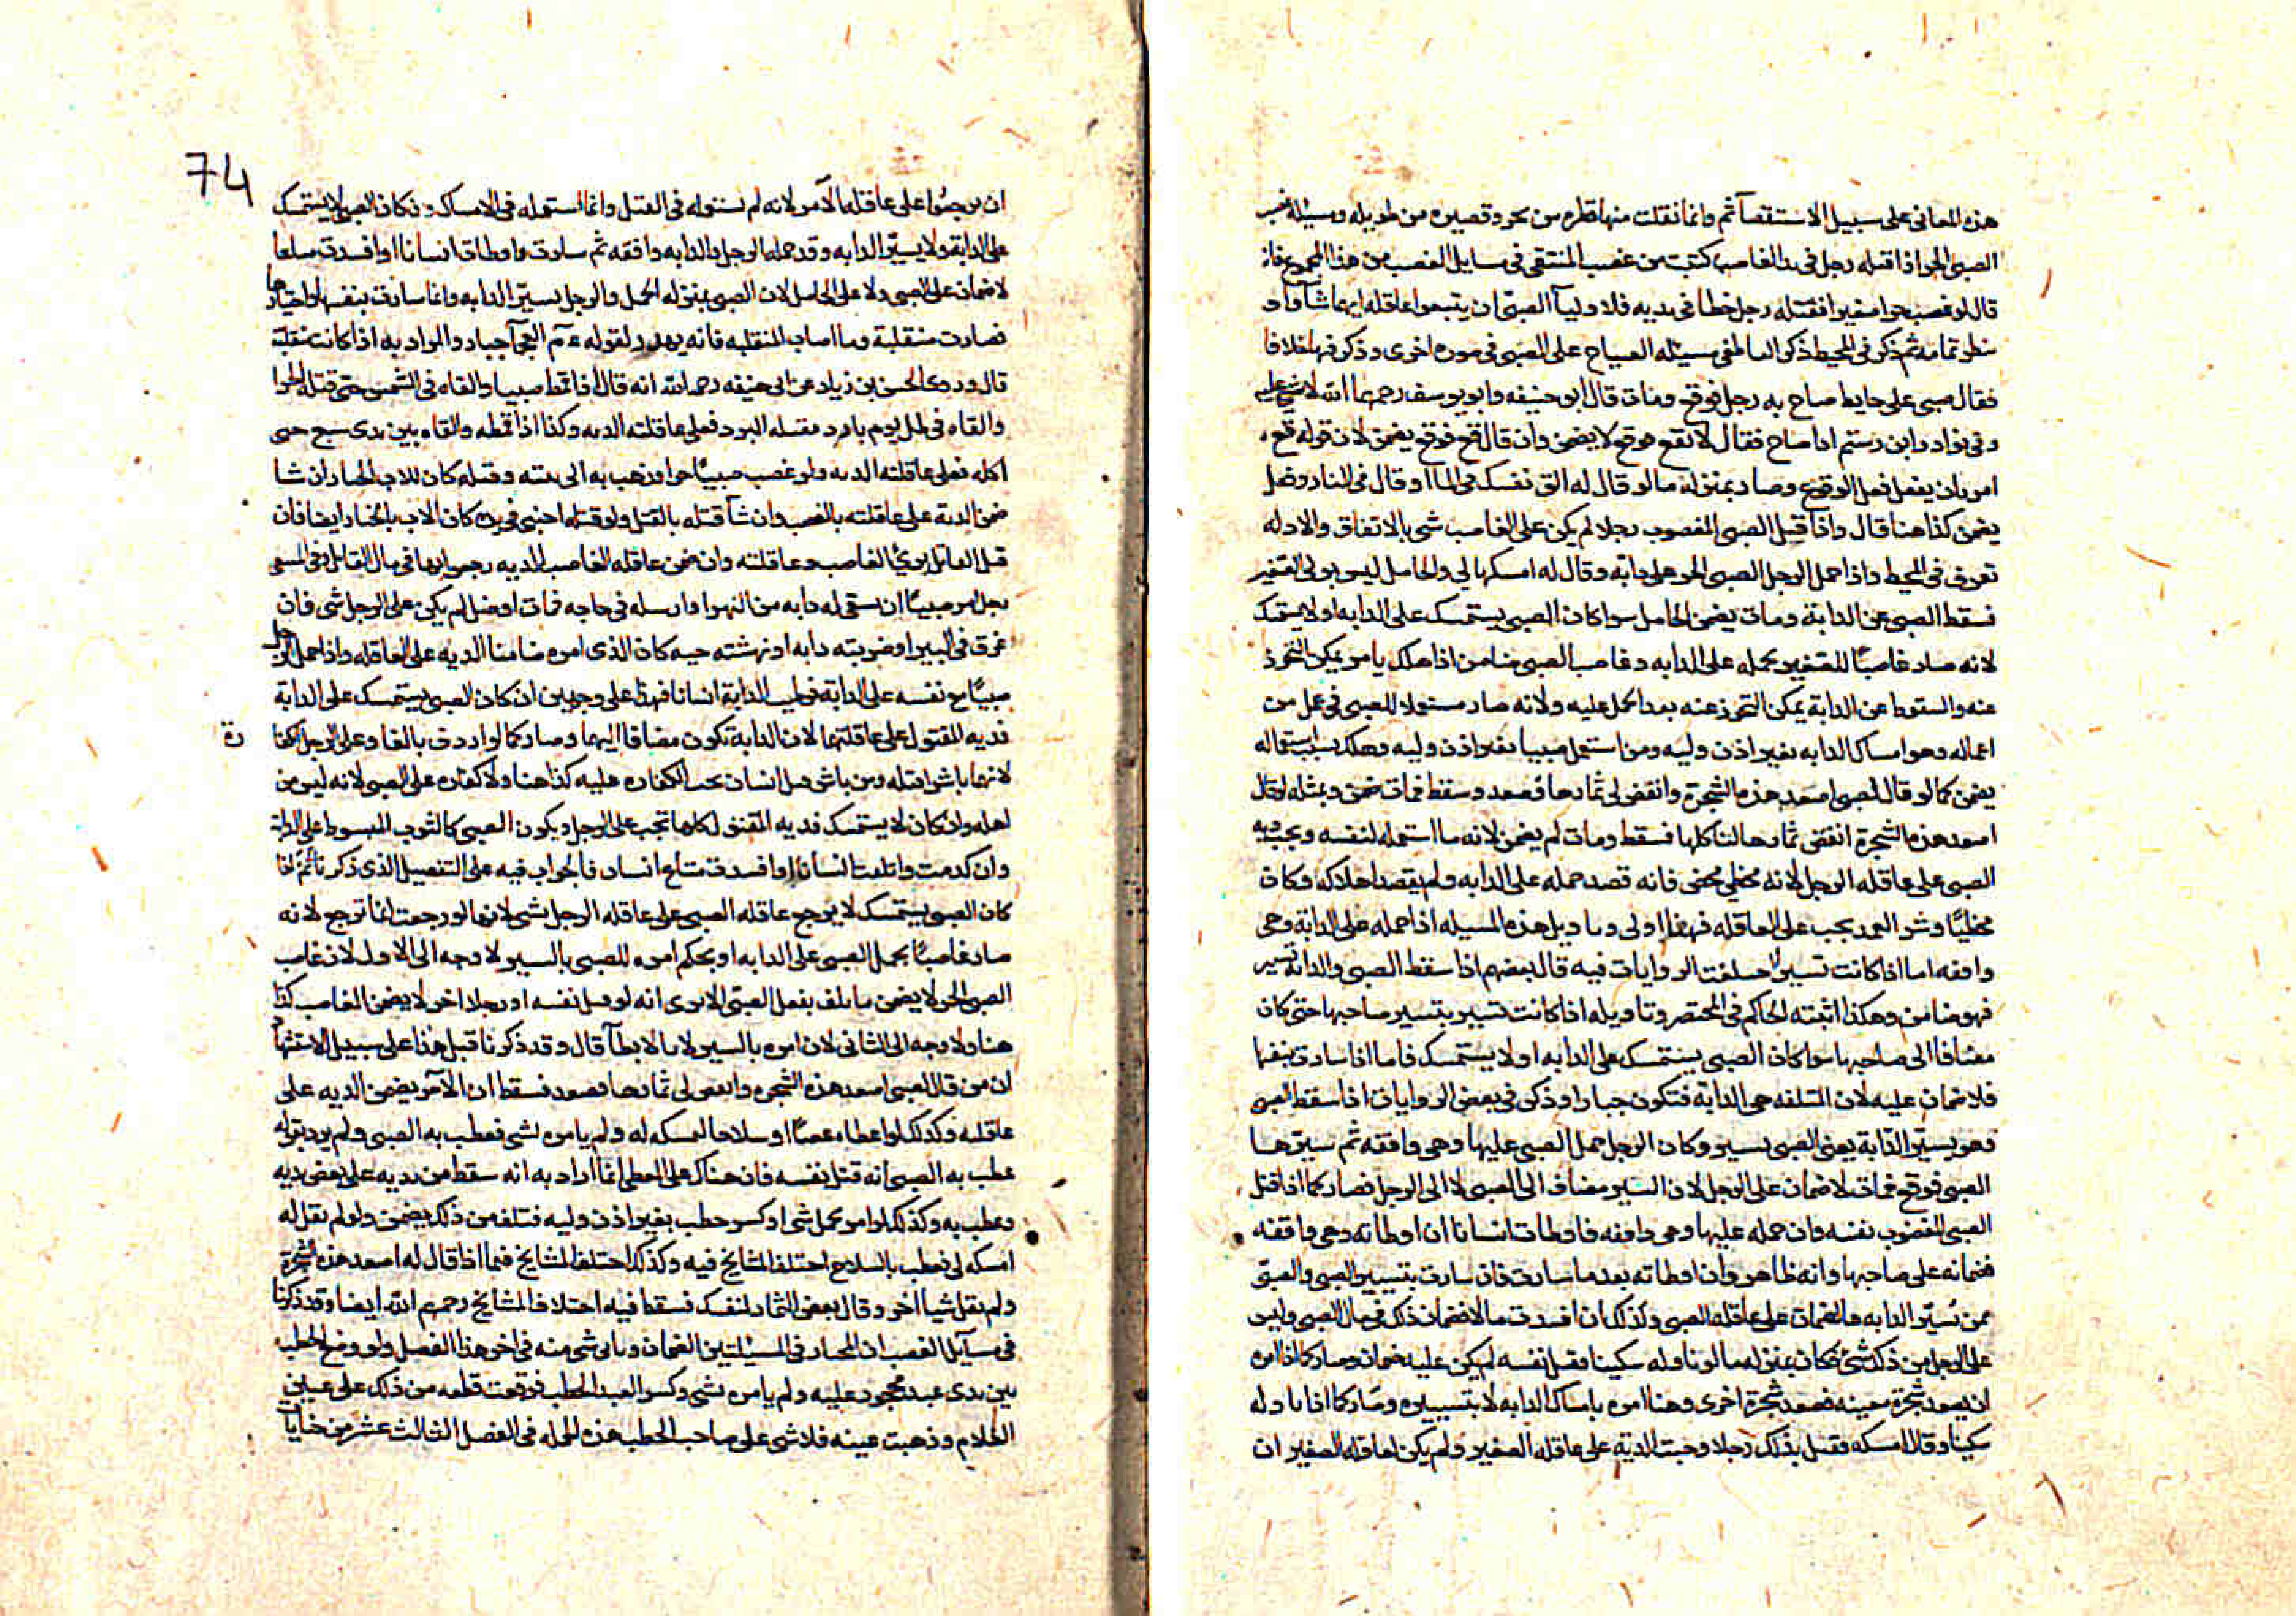 هذه المعانى على سبيل الاستقصآ ثم وانما نقلت منها قطره من بحر وقصيره من طويله ومسئلة غصب
الصبى الحر اذا قتله رجل فى يد الغاصب كتبت من غصب المنتقى فى مسايل الغصب من هذا المجموع فانه
قال لو غصب حرا صغيرا فقتله رجل خطا فى يديه فلاوليآ الصبى ان يتبعوا عاقله ايهما شآوا و
تمامه ثم ذكر فى المحيط ذكر الناطفى مسئله الصياح على الصبى فى صوره اخرى وذكر فيها خلافا
فقال صبى على حايط صاح به رجل فوقع ومات قال ابو حنيفه وابو يوسف رحمهما الله لا شى عليه
وفى نوادر ابن رستم اذا صاح فقال لا تقع فوقع لا يضمن وان قال قع فوقع يضمن لان قوله قع
امر بان يفعل فعل الوقوع وصار بمنزله ما لو قال له الق نفسك فى الما او قال فى النار وفعل
يضمن كذا هنا قال واذا قتل الصبى المغصوب رجلا لم يكن على الغاصب شى بالاتفاق والادله
تعرف فى المحيط واذا حمل الرجل الصبى الحر على دابه وقال له امسكها لى والحامل ليس بولى الصغير
فسقط الصبى عن الدابة ومات يضمن الحامل سوا كان الصبى يستمسك على الدابه او لا يستمسك
لانه صار غاصبًا للصغير بحمله على الدابه وغاصب الصبى ضامن اذا هلك بامر يمكن التحرز
عنه والسقوط عن الدابة يمكن التحرز عنه بعدما حمل عليه ولانه صار مستعملا للصبى فى عمل من
اعماله وهو امساك الدابه بغير اذن وليه ومن استعمل صبيا بغير اذن وليه وهلك بسبب استعماله
يضمن كما لو قال لصبى اصعد هذه الشجرة وانقض لى ثمارها فصعد وسقط فمات ضمن وبمثله لو قال
اصعد هذه الشجرة انقض ثمارها لتاكلها فسقط ومات لم يضمن لانه ما استعمله لنفسه ويجب ديه
الصبى على عاقله الرجل لانه مخطى محض فانه قصد حمله على الدابه ولم يقصد اهلاكه فكان
مخطيًا وشبه العمد يجب على العاقله فهذا اولى وتاويل هذه المسيله اذا حمله على الدابة وهى
واقفه اما اذا كانت تسير اختلفت الروايات فيه قال بعضهم اذا سقط الصبى والدابة تسير
فهو ضامن وهكذا اثبته الحاكم فى المختصر وتاويله اذا كانت تسير بتسيير صاحبها حتى كان
مضافا الى صاحبها سوا كان الصبى يستمسك على الدابه او لا يستمسك فاما اذا سارت بنفسها
فلا ضمان عليه لان المتلفه هى الدابة فتكون جبارا وذكر فى بعض الروايات اذا سقط الصبى
وهو يسيّر الدّابة يعنى الصبى يسير وكان الرجل حمل الصبى عليها وهى واقفه ثم سيّرها
الصبى فوقع فمات لا ضمان على الرجل لان السير مضاف الى الصبى لا الى الرجل فصار كما اذا قتل
الصبى المغصوب نفسه وان حمله عليها وهى واقفه فاوطات انسانا ان اوطاته وهى واقفه
فضمانه على صاحبها وانه ظاهر وان اوطاته بعد ما سارت فان سارت بتسيير الصبى والصبى
ممن يُسيّر الدابه فالضمان على عاقله الصبى وكذلك ان افسدت مالا ضمان ذلك فى مال الصبى وليس
على الرجل من ذلك شئ فكان بمنزله ما لو ناوله سكينا فقتل نفسه لم يكن عليه ضمان وصار كما اذا امره
ان يصعد شجرة معينه فصعد شجرة اخرى وهنا امره بامساك الدابه لا بتسييره وصار كما اذا ناوله
سكينا وقال امسكه فقتل بذلك رجلا وجبت الدية على عاقله الصغير ولم يكن لعاقله الصغير ان
74
ان يرجعوا على عاقله الآمر لانه لم يستعمله فى القتل وانما استعمله فى الامساك وان كان الصبى لا يستمسك
على الدابة ولا يسيّر الدابه وقد حمله الرجل والدابه واقفه ثم سارت واوطات انسانا او افسدت متاعا
لا ضمان على الصبى ولا على الحامل لان الصبى بمنزله الحمل والرجل لم يسيّر الدابه وانما سارت بنفسها واختيارها
فصارت منفلتة وما اصاب المنفلته فانه يهدر لقوله عم العجمآ جبار والمراد به اذا كانت منفلتة
قال وروى الحسن بن زياد عن ابى حنيفه رحمه الله انه قال اذا قمط صبيا والقاه فى الشمس حتى قتله الحر او
والقاه فى ظل يوم بارد فقتله البرد فعلى عاقلته الديه وكذا اذا قمطه والقاه بين يدى سبع حتى
اكله فعلى عاقلته الديه ولو غصب صبيًا حرا وذهب به الى بيته وقتله كان للاب الخيار ان شا
ضمن الدية على عاقلته بالغصب وان شآ قتله بالقتل ولو قتله اجنبى فى يده كان الاب بالخيار ايضا فان
قتل القاتل برئ الغاصب وعاقلته وان ضمن عاقله الغاصب الديه رجعوا بها فى مال القاتل وفى المنتقى
رجل امر صبيًا ان سقى له دابه من النهر او ارسله فى حاجه فمات او ضل لم يكن على الرجل شى فان
غرق فى البير او ضربته دابه او نهشته حيه كان الذى امره ضامنا الديه على العاقله واذا حمل الرجل
صبيًا مع نفسه على الدابة فوطيت الدابة انسانا فهذا على وجهين ان كان الصبى يستمسك على الدابة
فديه المقتول على عاقلتهما لان الدابة تكون مضافا اليهما وصار كما لو اردف بالغا وعلى الرجل الكفا
رة
لانهما باشرا قتله ومن باشر قتل انسان تجب الكفاره عليه كذا هنا ولا كفاره على الصبى لانه ليس من
اهله وان كان لا يستمسك فديه المقتول كلها تجب على الرجل ويكون الصبى كالثوب المبسوط على الدابة
وان كدمت واتلفت انسانا او افسدت متاع انسان فالجواب فيه على التفصيل الذى ذكرنا ثم اذا
كان الصبى يستمسك لا يرجع عاقله الصبى على عاقله الرجل بشى لانها لو رجعت انما ترجع لانه
صار غاصبًا بحمل الصبى على الدابه او بحكم امره للصبى بالسير لا وجه الى الاول لان غاصب
الصبى الحر لا يضمن ما تلف بفعل الصبى الا يرى انه لو قتل نفسه او رجلا اخر لا يضمن الغاصب كذا
هنا ولا وجه الى الثانى لان امره بالسير لا بالايطآ قال وقد ذكرنا قبل هذا على سبيل الاستشهاد
ان من قال لصبى اصعد هذه الشجره وانقض لى ثمارها فصعد فسقط ان الآمر يضمن الديه على
عاقلته وكذلك لو اعطاه عصًا او سلاحا ليمسكه له ولم يامره بشى فعطب به الصبى ولم يرد بقوله
عطب به الصبى انه قتل نفسه فان هناك على المعطى انما اراد به انه سقط من يديه على بعض بدنه
وعطب به وكذلك لو امر بحمل شى او كسر حطب بغير اذن وليه فتلف من ذلك يضمن ولو لم يقل له
امسكه لى فعطب بالسلاح اختلف المشايخ فيه وكذلك اختلف المشايخ فيما اذا قال له اصعد هذه الشجرة
ولم يقل شيا اخر وقال بعض الثمار لنفسك فسقط فيه اختلاف المشايخ رحمهم الله ايضا وقد ذكرنا
فى مسآيل الغصب ان المختار فى المسئلتين الضمان وياتى شى منه فى اخر هذا الفصل ولو وضع الحطب
بين يدى عبد محجور عليه ولم يامره بشى وكسر العبد الحطب فوقعت قطعه من ذلك على عين
الغلام وذهبت عينه فلا شى على صاحب الحطب هذه الجمله فى الفصل الثالث عشر من جنايات